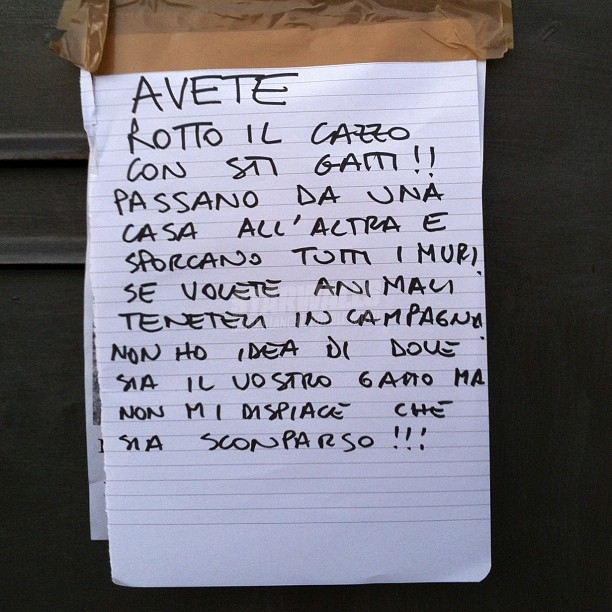 AVETE
ROTTO IL CAZZO
CON STI GATTI!!
PASSANO DA UNA
CASA ALL'ALTRA E
SPORCANO TUTTI I MURI.
SE VOLETE ANIMALI
TENETELI IN CAMPAGNA.
NON HO IDEA DI DOVE
SIA IL VOSTRO GATTO MA
NON MI DISPIACE CHE
SIA SCONPARSO!!!